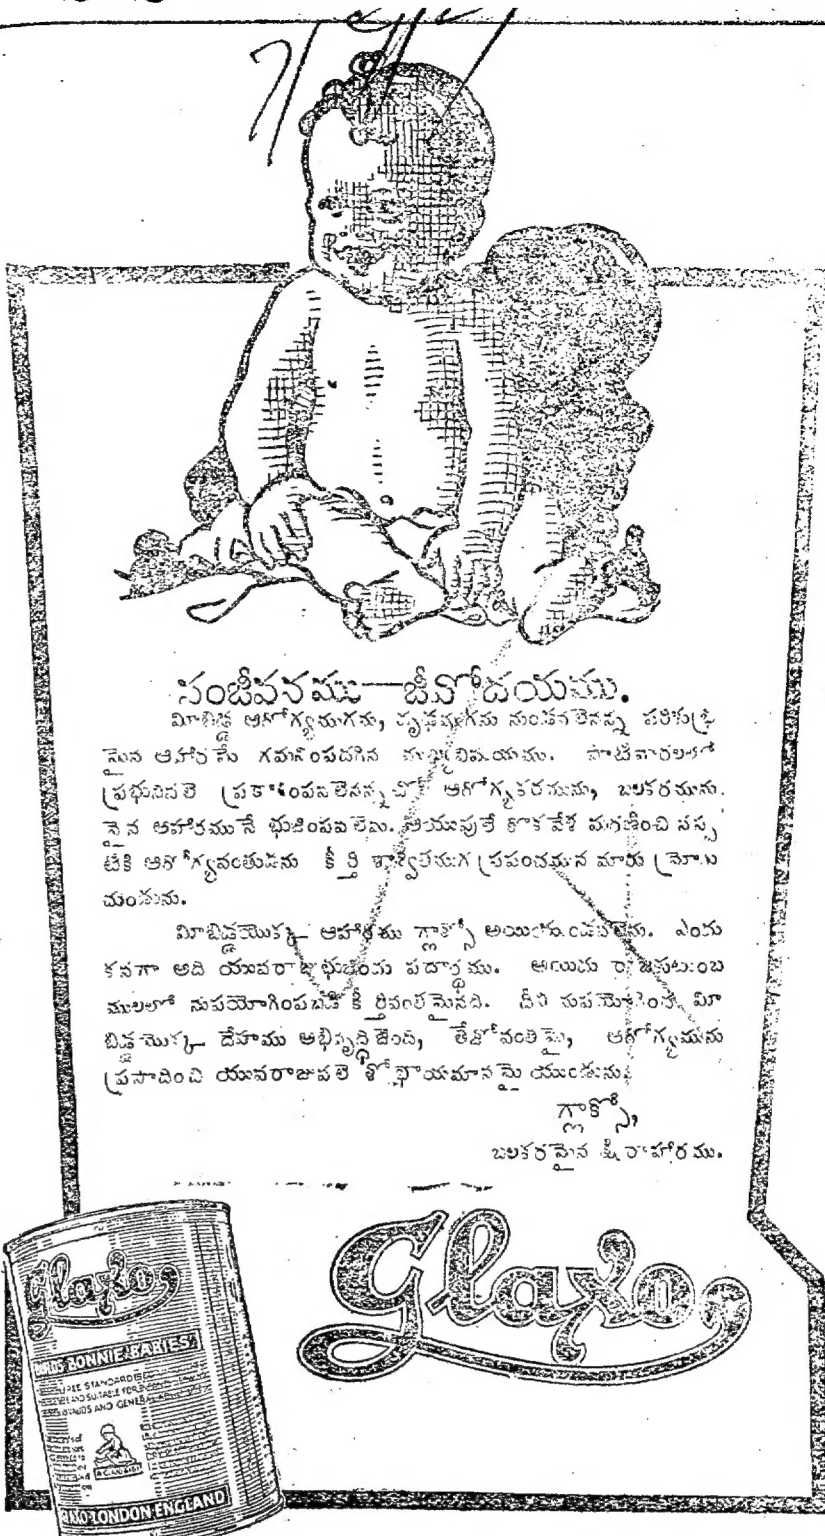 సంజీవనము—జీవోదయము.
మీబిడ్డ ఆరోగ్యముగను, దృఢముగను నుండవలెనన్న పరిశుభ్ర
మైన ఆహారమే గమనింపదగిన ముఖ్యవిషయము. సాటివారలలో
ప్రభునివలె ప్రకాశింపవలెనన్నచో ఆరోగ్యకరమును, బలకరమును
నైన ఆహారమునే భుజింపవలెను.
టికి ఆరోగ్యవంతుడను కీర్తి శాశ్వతముగ ప్రపంచమున మారు మ్రోగు
చుండును.
మీబిడ్డయొక్క ఆహారము గ్లాక్సో అయియుండవలెను. ఎందు
కనగా అది యువరాజు భుజించు పదార్థము. అయిదు రాజకుటుంబ
ములలో నుపయోగింపబడి కీర్తివంతమైనది. దీని నుపయోగించిన మీ
బిడ్డయొక్క దేహము అభివృద్ధిజెంది, తేజోవంతమై, ఆరోగ్యమును
ప్రసాదించి యువరాజువలె శోభాయమానమై యుండును.
గ్లాక్సో,
బలకరమైన క్షీరాహారము.
Glaxo
Glaxo
BONNIE BABIES
AND GENERAL
LONDON ENGLAND